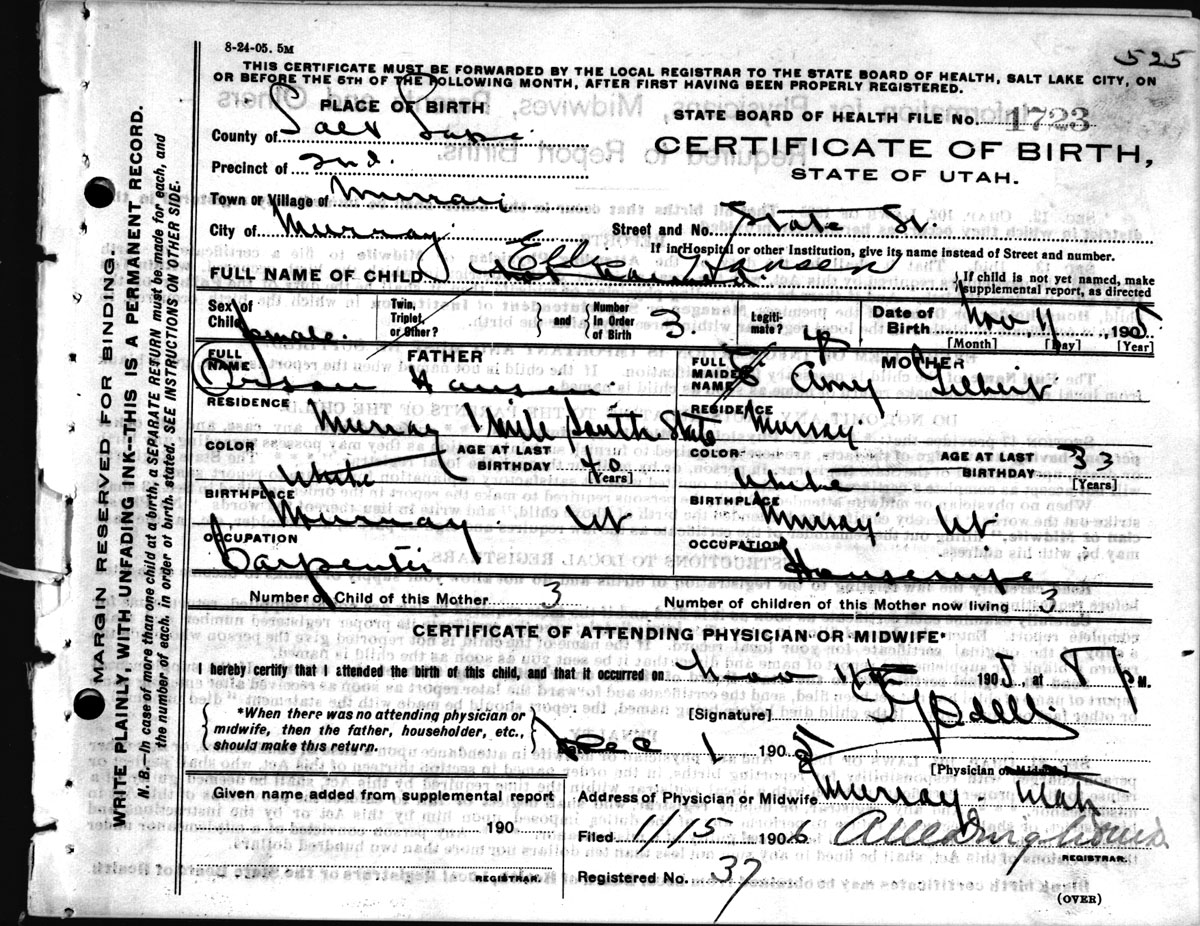 525
8-24-05. 5M
THIS CERTIFICATE MUST BE FORWARDED BY THE LOCAL REGISTRAR TO THE STATE BOARD OF HEALTH, SALT LAKE CITY, ON
OR BEFORE THE 5TH OF THE FOLLOWING MONTH, AFTER FIRST HAVING BEEN PROPERLY REGISTERED.
PLACE OF BIRTH
STATE BOARD OF HEALTH FILE NO. 1723
County of Salt Lake
CERTIFICATE OF BIRTH,
STATE OF UTAH.
Precinct of 2nd.
Town or Village of Murray
City of Murray Street and No. State St.
If in Hospital or other Institution, give its name instead of Street and number.
FULL NAME OF CHILD Hansen
If child is not yet named, make supplemental report, as directed
Sex of Child female. Twin, Triplet, or Other? and Number in Order of Birth 3 Legitimate? Date of Birth Nov 11, 1905
[Month] [Day] [Year]
FATHER MOTHER
FULL NAME Orson Hansen FULL MAIDEN NAME Amy
RESIDENCE Murray 1 Mile South State RESIDENCE Murray
COLOR White AGE AT LAST BIRTHDAY 40 [Years] COLOR White AGE AT LAST BIRTHDAY 33 [Years]
BIRTHPLACE Murray Ut BIRTHPLACE Murray Ut.
OCCUPATION Carpenter OCCUPATION Housewife
Number of Child of this Mother 3 Number of children of this Mother now living 3
CERTIFICATE OF ATTENDING PHYSICIAN OR MIDWIFE*
I hereby certify that I attended the birth of this child, and that it occurred on Nov 11th 1905, at 8 P M.
*When there was no attending physician or midwife, then the father, householder, etc., should make this return.
[Signature]
Date Dec 1 1905
[Physician or Midwife]
Given name added from supplemental report
190
REGISTRAR.
Address of Physician or Midwife Murray, Utah
Filed 1/15 1906
REGISTRAR.
Registered No. 37
(OVER)
MARGIN RESERVED FOR BINDING.
WRITE PLAINLY, WITH UNFADING INK--THIS IS A PERMANENT RECORD.
N. B.—In case of more than one child at a birth, a SEPARATE RETURN must be made for each, and
the number of each, in order of birth, stated. SEE INSTRUCTIONS ON OTHER SIDE.